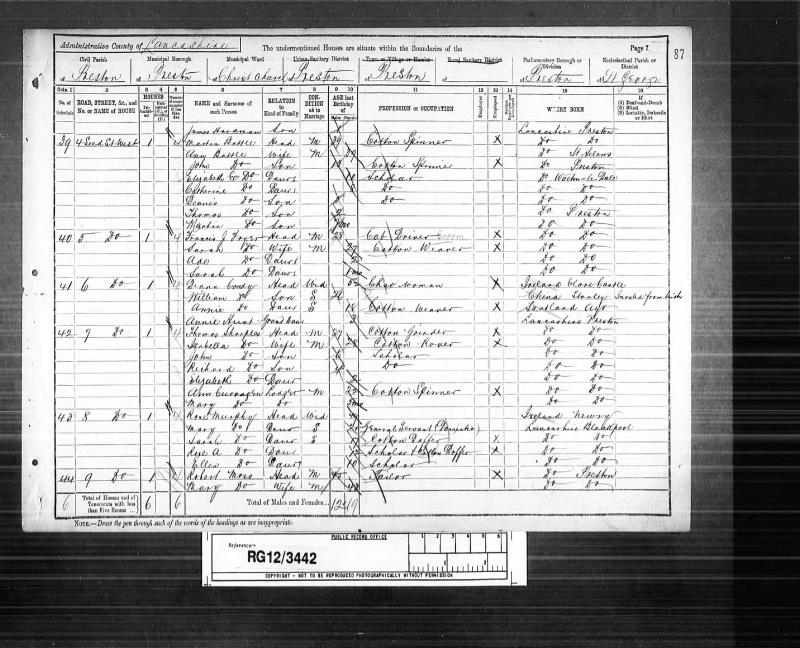 Administrative County of Lancashire The undermentioned Houses are situate within the Boundaries of the Page 7. 87
Civil Parish Municipal Borough Municipal Ward Urban Sanitary District Town or Village or Hamlet Rural Sanitary District Parliamentary Borough or Division Ecclesiastical Parish or District
of Preston of Preston of Christ Church of Preston of Preston of of Preston of St George
Cols. 1 2 3 4 5 6 7 8 9 10 11 12 13 14 15 16
No. of Schedule ROAD, STREET, &c., and No. or NAME of HOUSE HOUSES NAME and Surname of each Person RELATION to Head of Family CONDITION as to Marriage AGE last Birthday of PROFESSION or OCCUPATION Employer Employed WHERE BORN If (1) Deaf-and-Dumb (2) Blind (3) Lunatic, Imbecile or Idiot
James Hardman Son Lancashire Preston
39 4 Seed St West 1 4 Martin Battle Head M 39 Cotton Spinner X Do Do
Ann Battle Wife M 39 Do St Helens
John Do Son Cotton X Do Preston
Elizabeth E Do Daur 10 Scholar Do
Catherine Do Daur Do Do Do
Dennis Do Son Do Do Do
Thomas Do Son 2 Do Preston
Martin Do Son Do Do
40 5 Do 1 4 Francis J Head M 28 Cab Driver X Do Do
Sarah Do Wife M 27 Cotton Weaver X Do Do
Ada Do Daur Do Do
Sarah Do Daur 1mo Do Do
41 6 Do 1 4 Diana Head Wid 52 Char woman X Ireland Clare Castle
William Do Son S China
Annie Do Daur S 18 Cotton Weaver X Scotland Ayr
Annie Grand daur Lancashire Preston
42 7 Do 1 4 Thomas Sharples Head M 27 Cotton Grinder X Do Do
Isabella Do Wife M 28 Cotton Rover X Do Do
John Do Son Scholar Do Do
Richard Do Son 4 Do Do Do
Elizabeth Do Daur Do Do
Ann Lodger M 22 Cotton Spinner X Do Do
Mary Do Do Do Do
43 8 Do 1 4 Rose Murphy Head Wid Ireland Newry
Mary Do Daur S 21 General Servant (Domestic) Lancashire Blackpool
Sarah Do Daur S Cotton Doffer X Do Do
Rose A Do Daur Scholar & Cotton Doffer X Do Do
Ellen Do Daur 10 Scholar Do Do
44 9 Do 1 Robert Moss Head M Tailor X Do Preston
Mary Do Wife M Do Do
6 Total of Houses and of Tenements with less than Five Rooms ... 6 6 Total of Males and Females... 12 19
NOTE.—Draw the pen through such of the words of the headings as are inappropriate.
PUBLIC RECORD OFFICE
Reference:-
RG12/3442
1 2 3 4 5 6
COPYRIGHT - NOT TO BE REPRODUCED PHOTOGRAPHICALLY WITHOUT PERMISSION